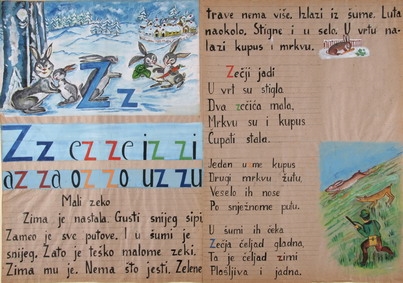 Z z
Z z ez ze iz zi
az za oz zo uz zu
Mali zeko
Zima je nastala. Gusti snijeg sipi.
Zameo je sve putove. I u šumi je
snijeg. Zato je teško malome zeki.
Zima mu je. Nema što jesti. Zelene
trave nema više. Izlazi iz šume. Luta
naokolo. Stigne i u selo. U vrtu na-
lazi kupus i mrkvu.
Zečji jadi
U vrt su stigla
Dva zečića mala,
Mrkvu su i kupus
Čupati stala.
Jedan uzme kupus
Drugi mrkvu žutu,
Veselo ih nose
Po snježnome putu.
U šumi ih čeka
Zečja čeljad gladna,
Ta je čeljad zimi
Plašljiva i jadna.